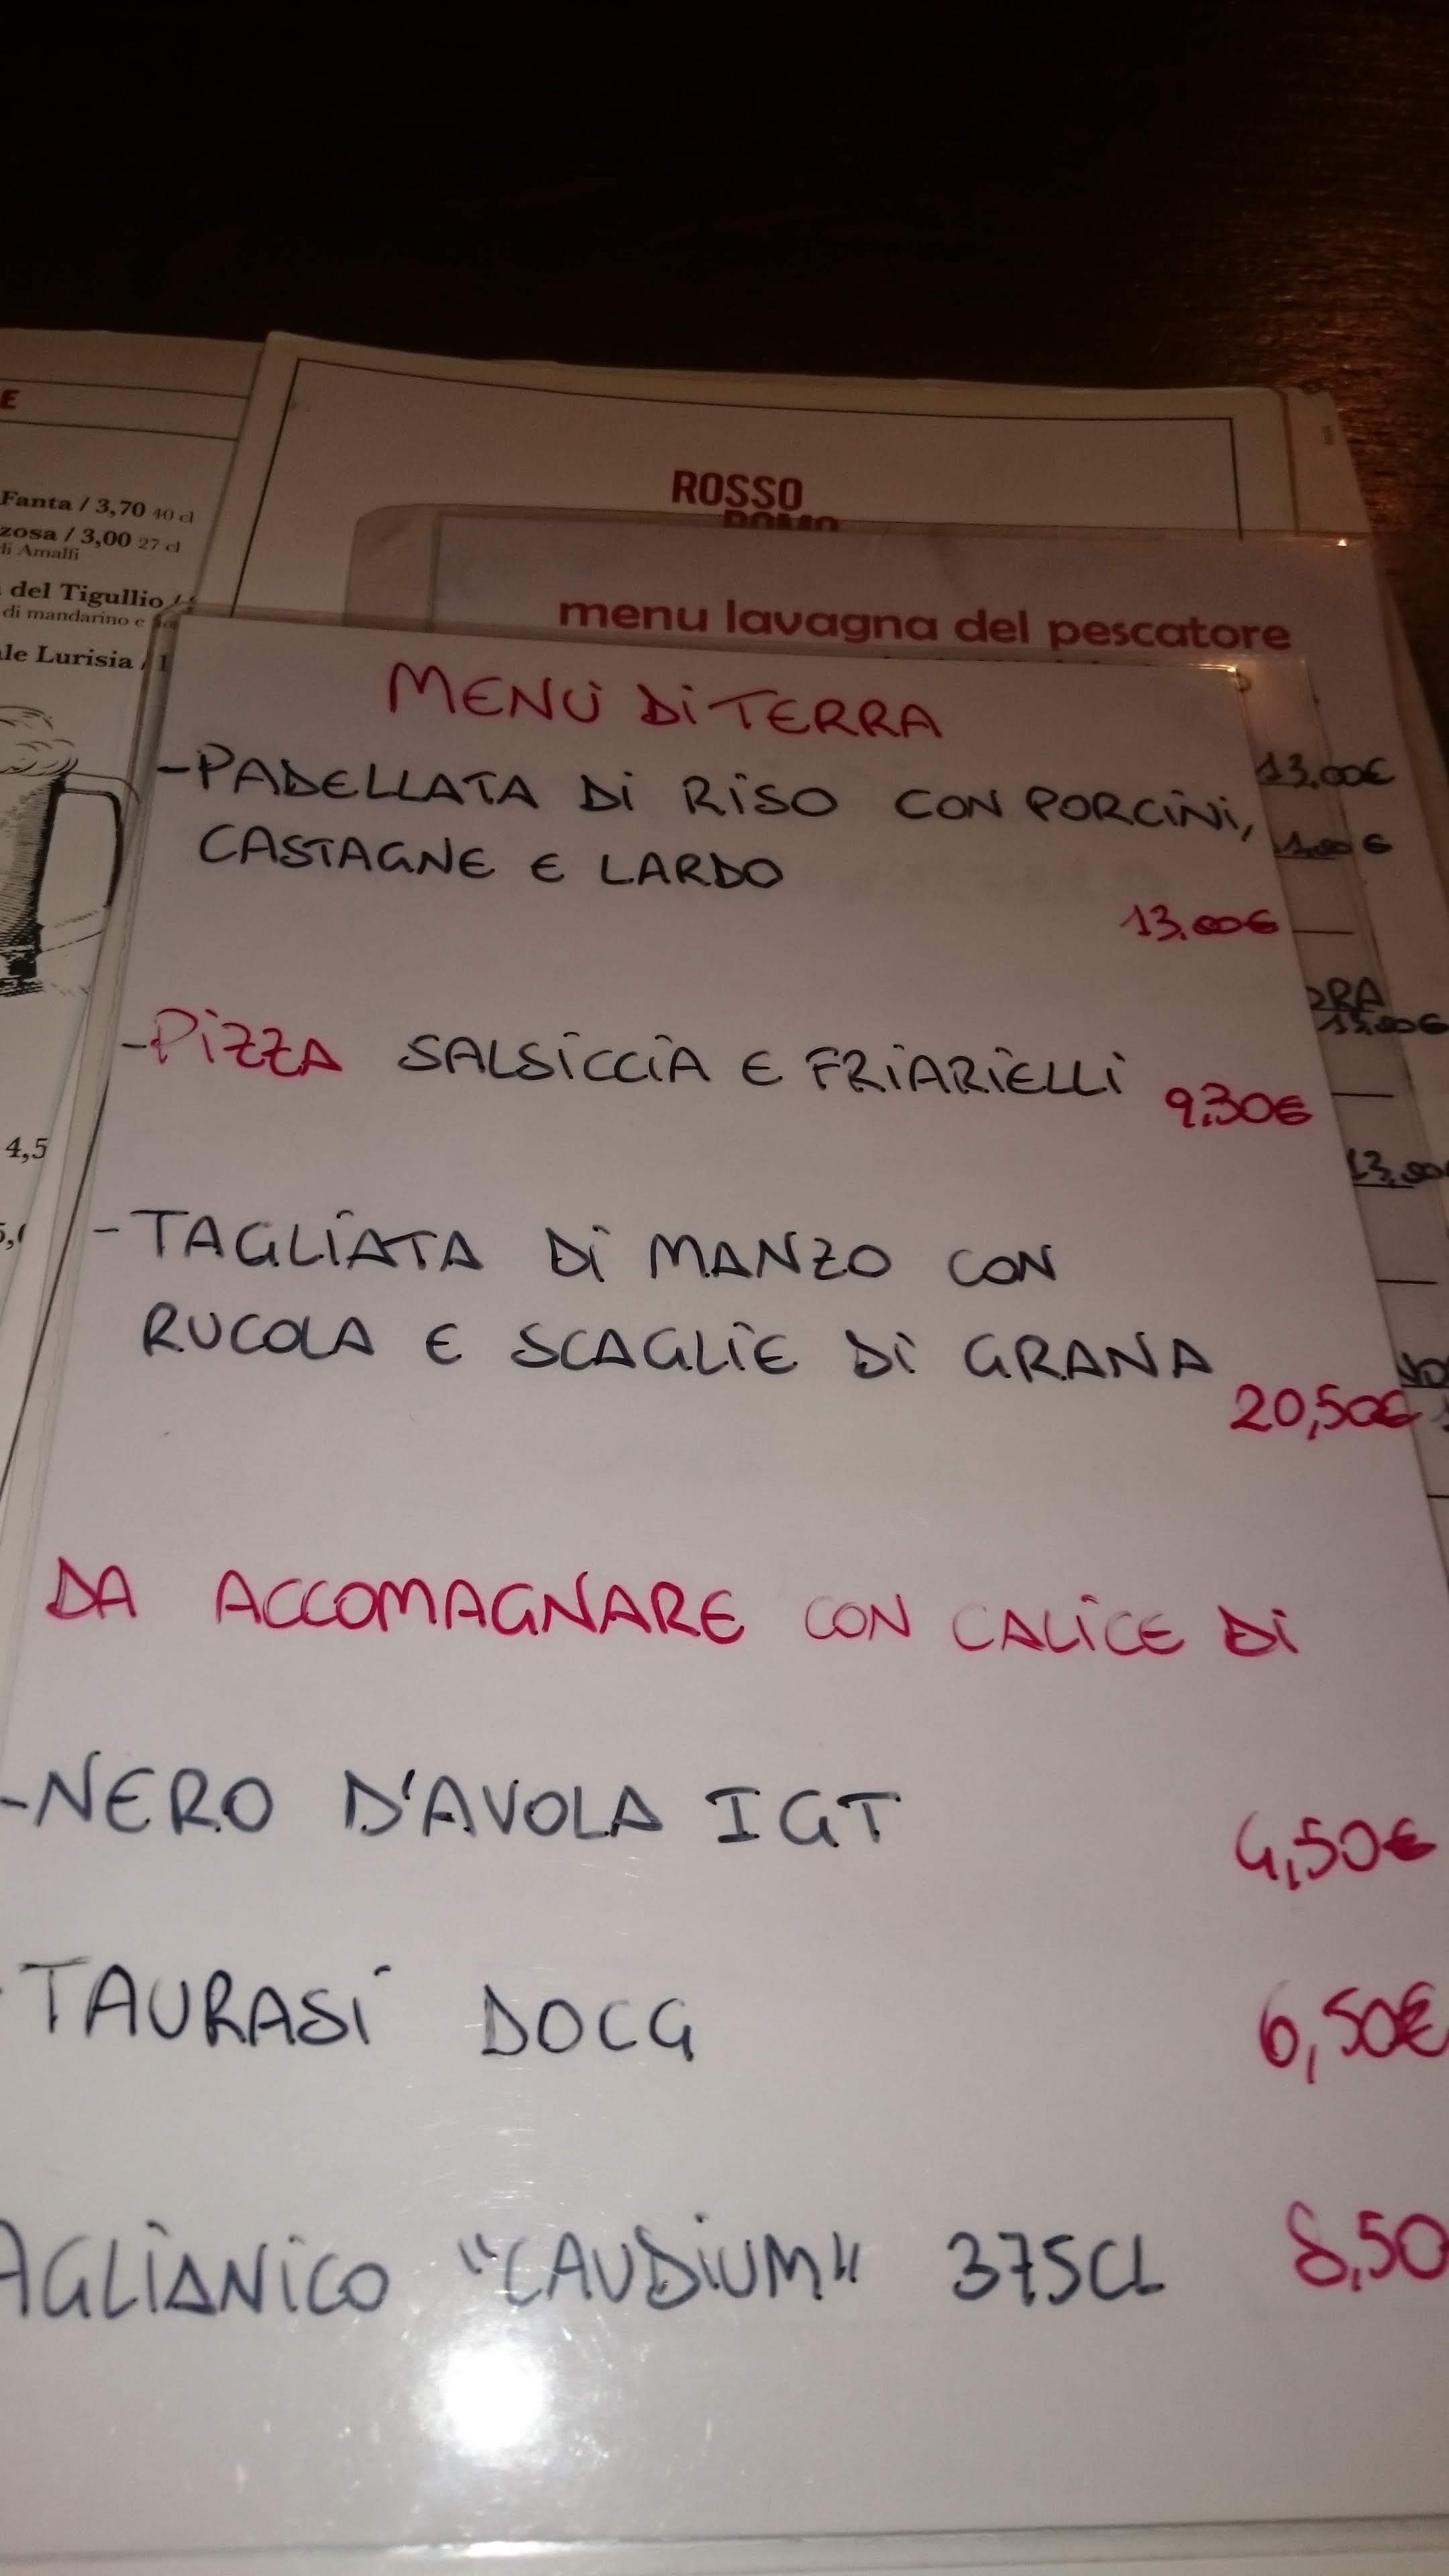 E
Fanta / 3,70 40 cl
zosa / 3,00 27 cl
di Amalfi
del Tigullio /
di mandarino e
le Lurisia / 1
4,5
ROSSO
POMO
menu lavagna del pescatore
MENÙ Di TERRA
-PADELLATA Di RiSO CON PORCiNi,
CASTAGNE E LARDO
13.00€
-PiZZA SALSiCCiA E FRiARiELLi 9,30€
-TAGLiATA Di MANZO CON
RUCOLA E SCAGLiE Di GRANA
20,50€
DA ACCOMAGNARE CON CALiCE Di
-NERO D'AVOLA IGT 4,50€
TAURASi DOCG 6,50€
AGLiANiCO "CAUDiUM" 375CL 8,50
13.00€
ORA
13.00€
13,00